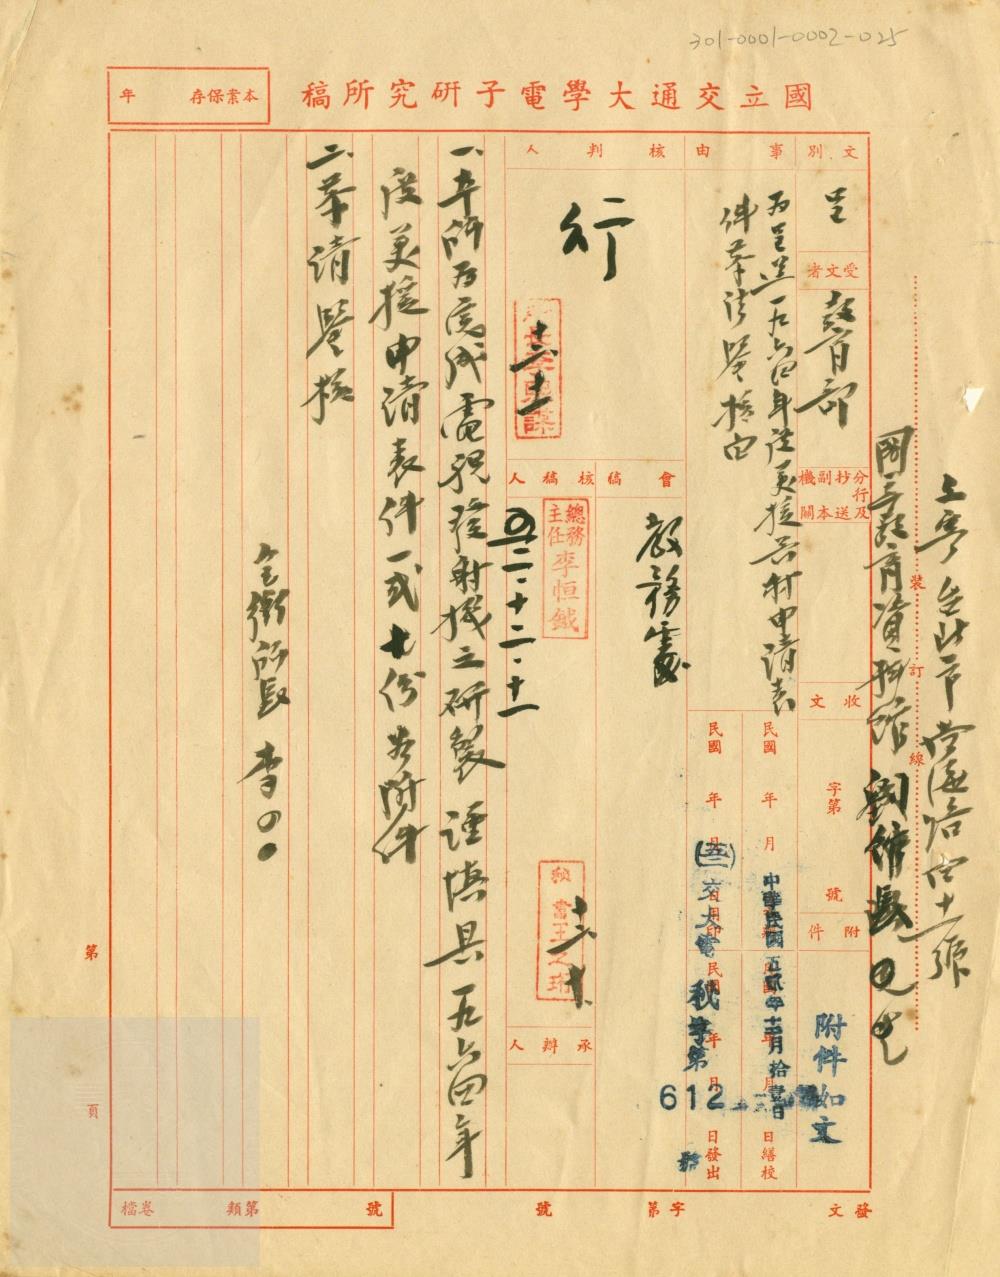 301-0001-0002-025
國立交通大學電子研究所稿
本案保存 年
文別
呈
受文者
教育部
分行及抄送副本機關
收文
字第 號
附件
附件如文
事由
為呈送一九六四年度美援器材申請表
件恭請鑒核由
核判人
行
十二
會稿
教務處
核稿人
總務主任李恒鉞
五二・十二・十一
秘書王之珩
承辦人
民國 年 月 日繕校
民國 年 月 日用印
民國 年 月 日發出
中華民國五貳年十二月拾壹日
(五二)交大電秘字第
612
號
一、本所為完成電視發射機之研製謹填具一九六四年
度美援申請表件一式七份如附件
二、恭請鑒核
全銜所長 李○○
上寄台北市南海路四十三號
國立教育資料館 劉館長
裝訂線
第 頁
發文 字第 號
檔卷 第類 號